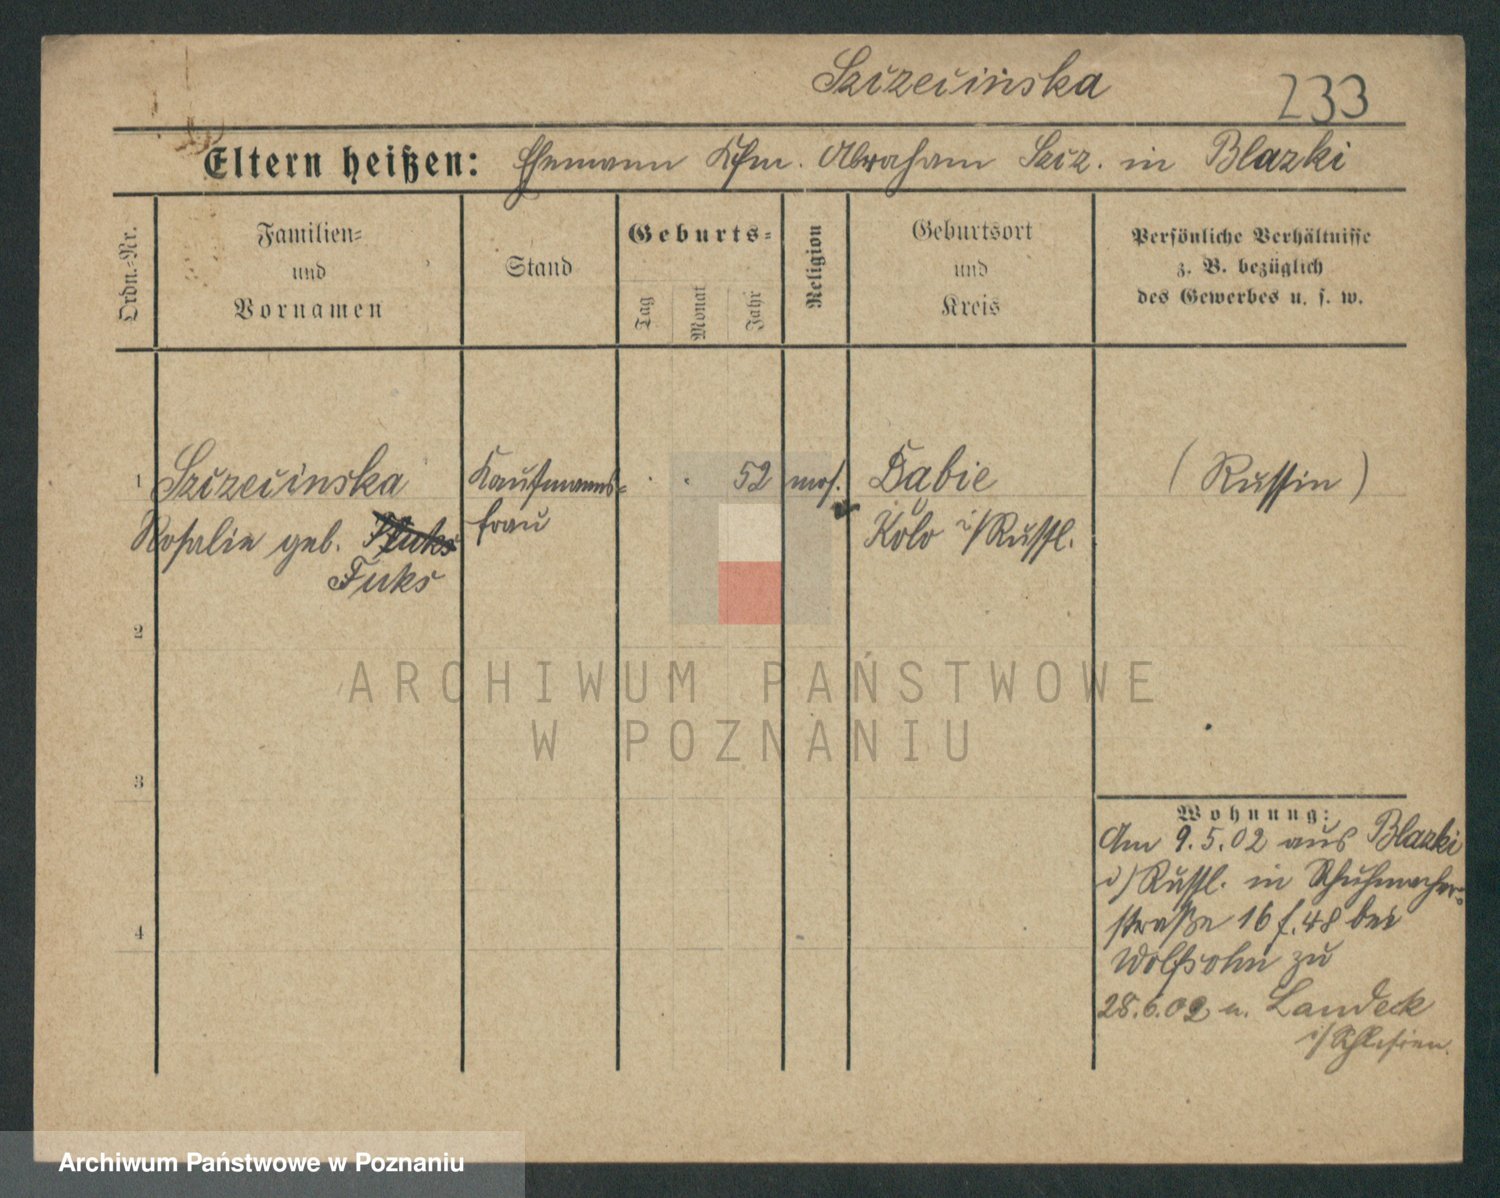 Szczecinska
233
Eltern heißen: Ehemann Kfm. Abraham Szcz. in Blazki
Ordn.-Nr.
Familien-
und
Vornamen
Stand
Geburts-
Tag
Monat
Jahr
Religion
Geburtsort
und
Kreis
Persönliche Verhältnisse
z. B. bezüglich
des Gewerbes u. s. w.
1 Szczecinska Kaufmanns- 52 mos. Dabie (Russin)
Rosalie geb. frau Kolo i/Russl.
Fuks
2
3
4
Wohnung:
Am 9.5.02 aus Blazki
i/Russl. in Schuhmacher-
straße 16 f. 48 bei
Wolfsohn zu
28.6.02 n. Landeck
i/Schlesien.
ARCHIWUM PAŃSTWOWE
W POZNANIU
Archiwum Państwowe w Poznaniu